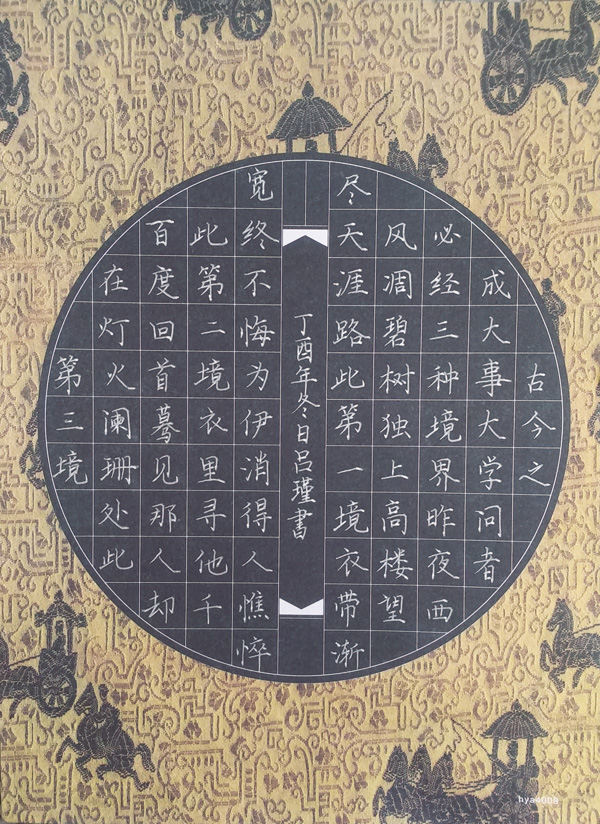 古今之
成大事大学问者
必经三种境界昨夜西
风凋碧树独上高楼望
尽天涯路此第一境衣带渐
宽终不悔为伊消得人憔悴
此第二境衣里寻他千
百度回首蓦见那人却
在灯火阑珊处此
第三境
丁酉年冬日吕瑾書